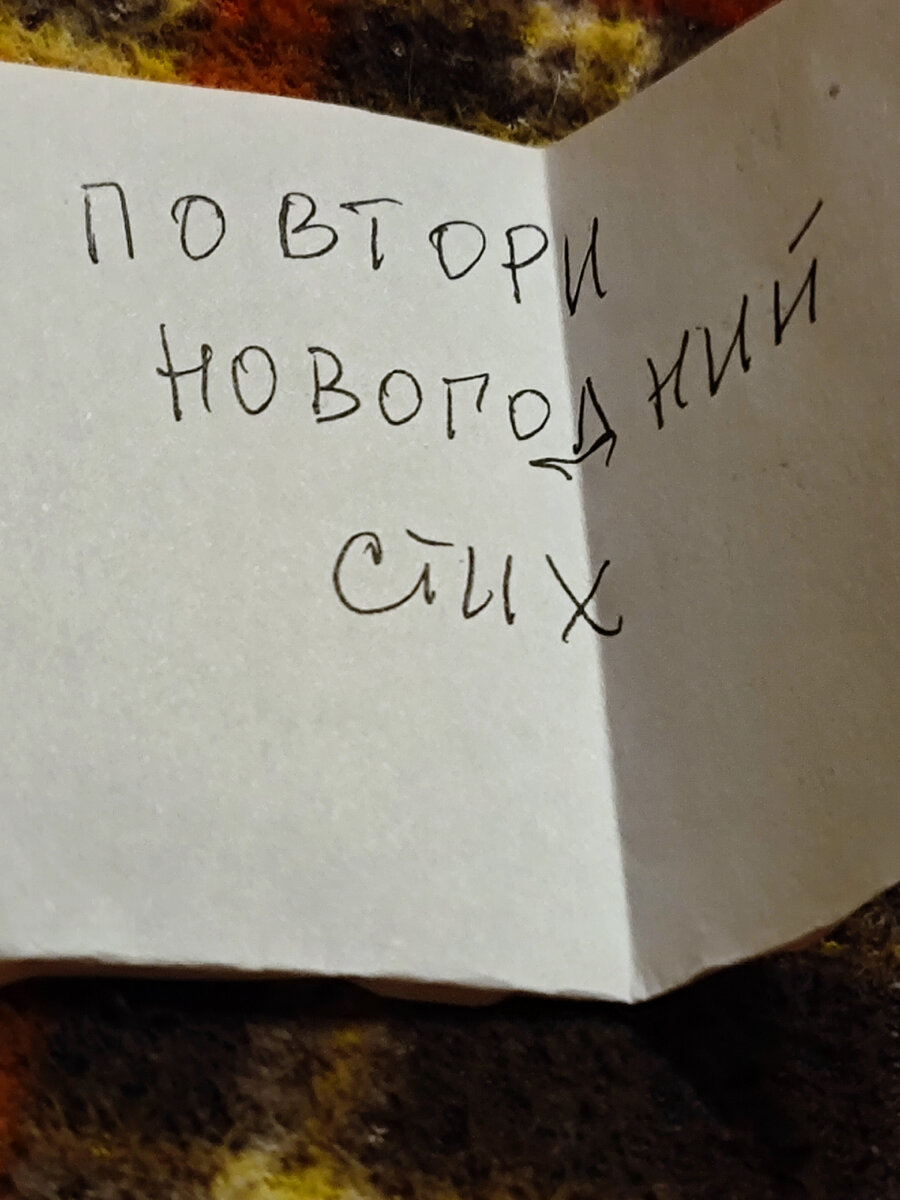 ПОВТОРИ
НОВОГОДНИЙ
СТИХ